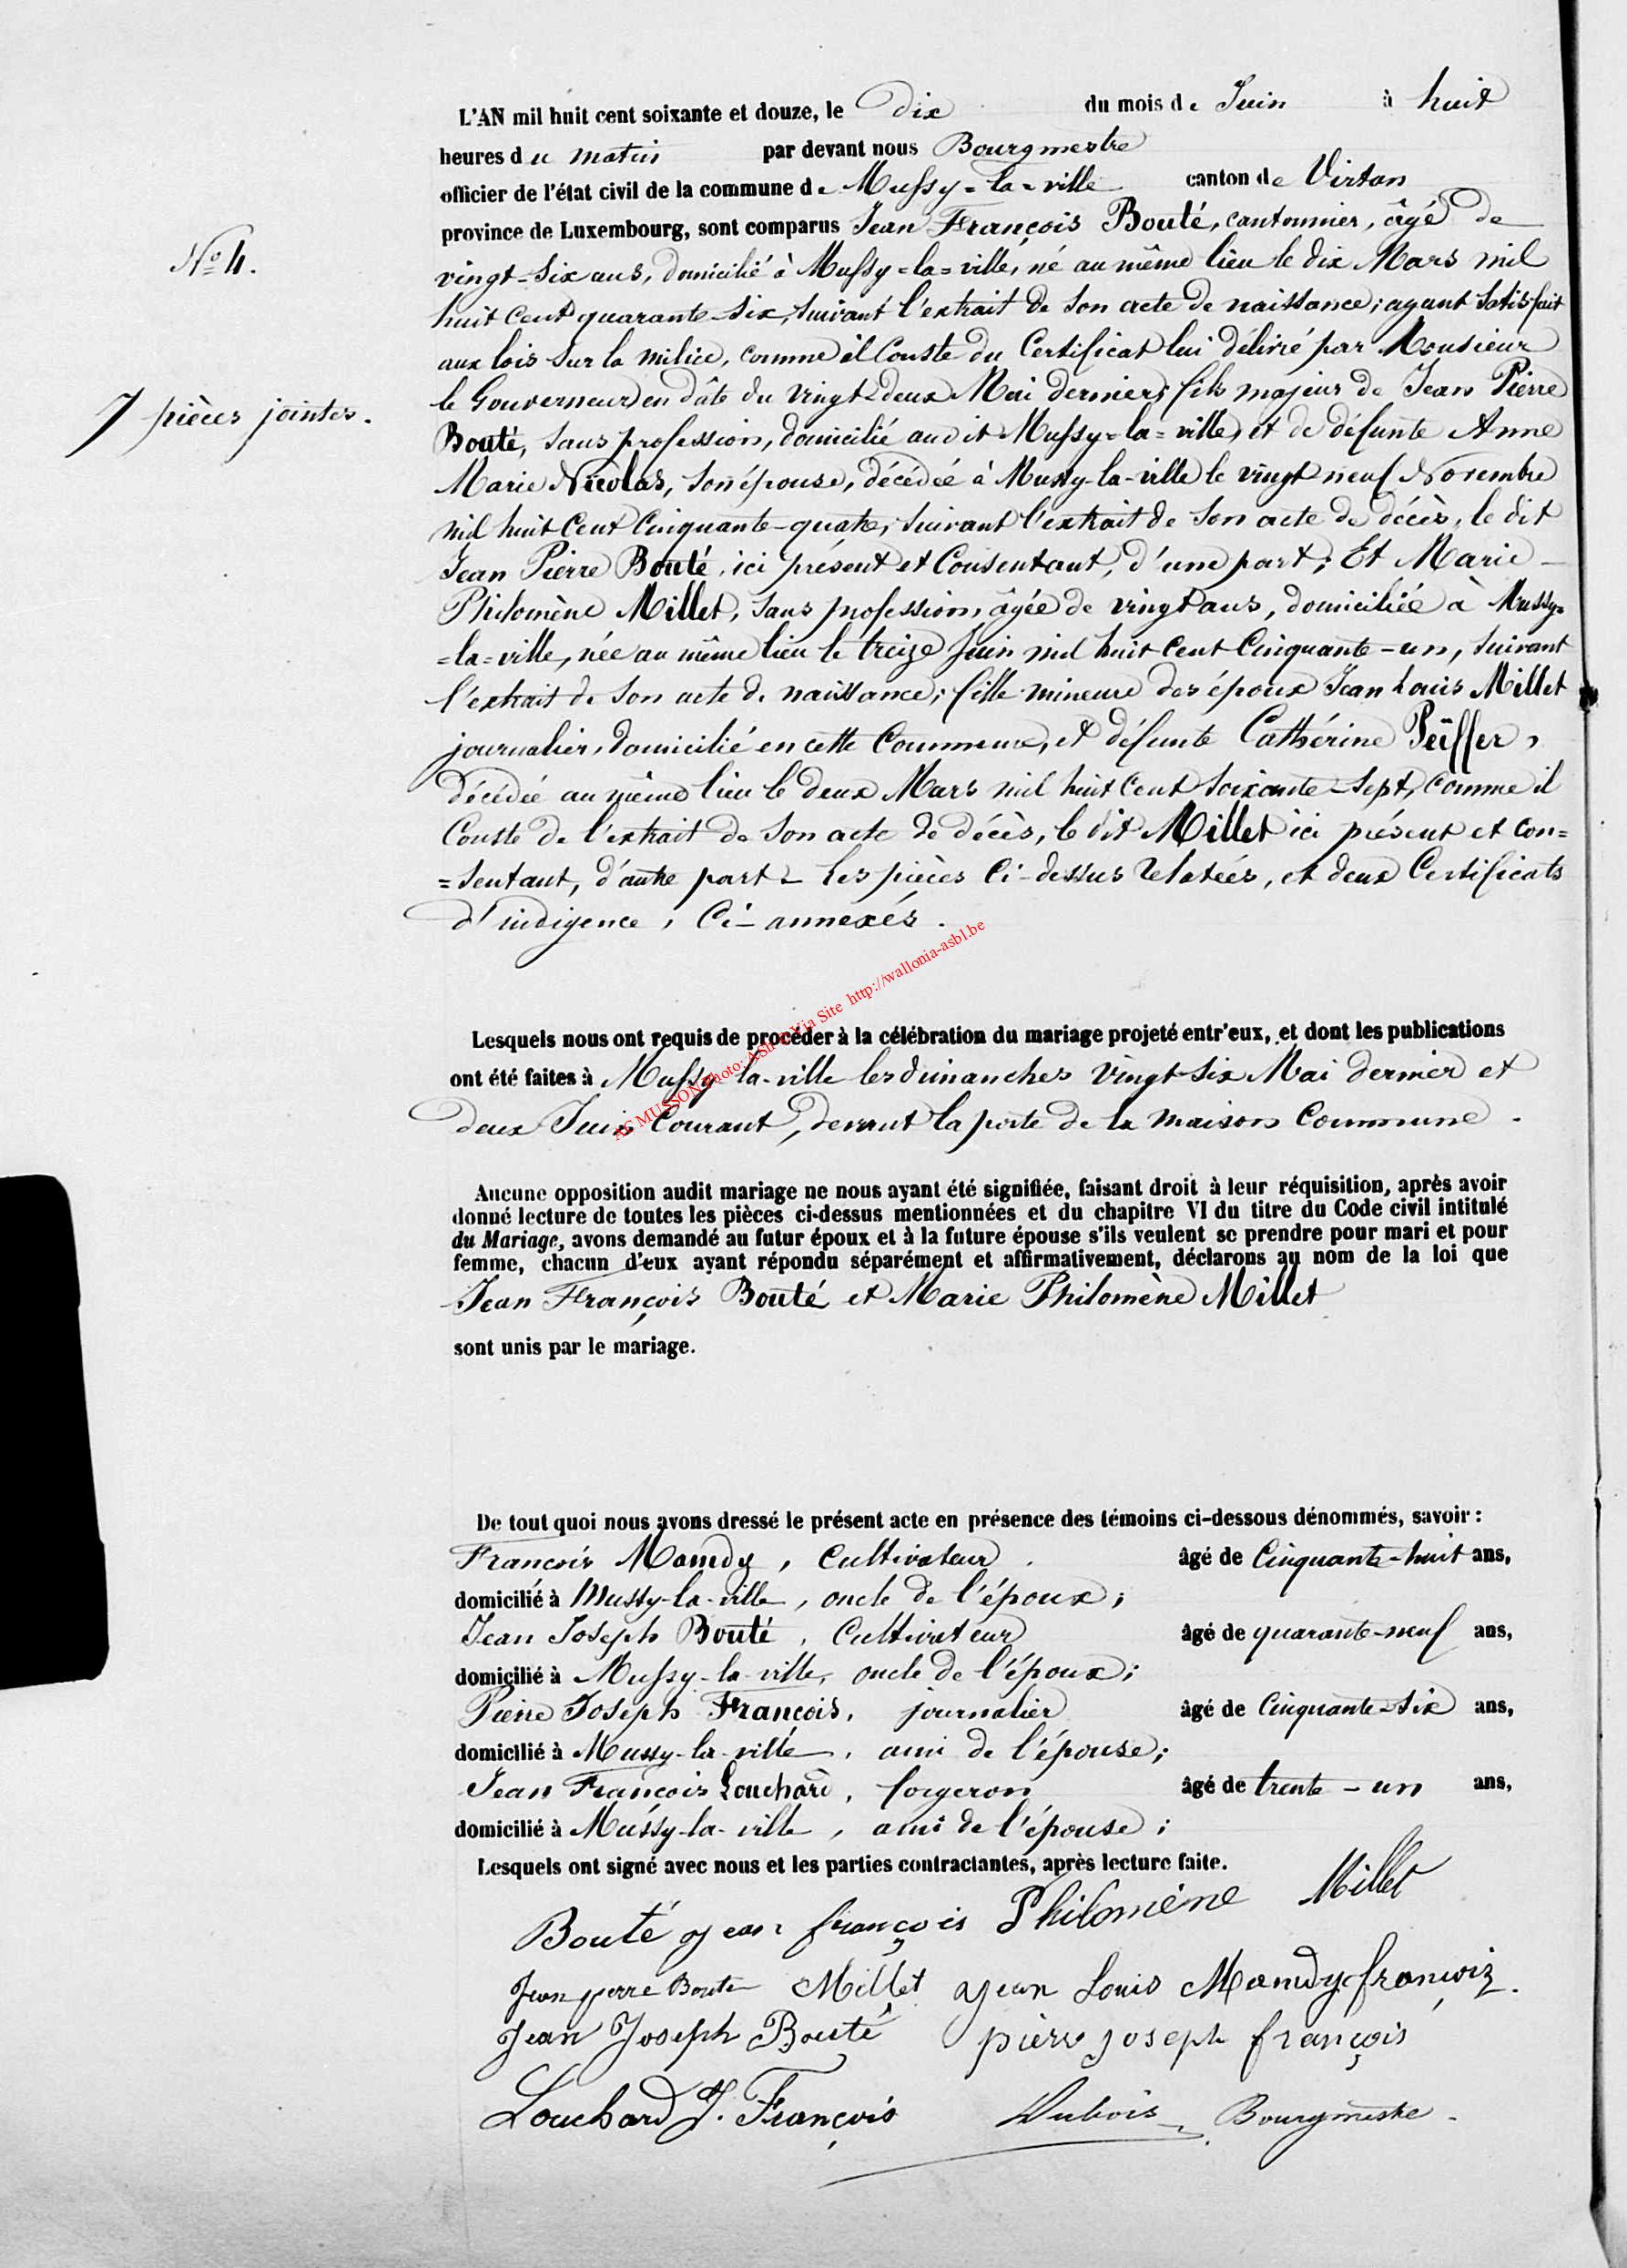 L'AN mil huit cent soixante et douze, le dix du mois de Juin à huit
heures du matin par devant nous Bourgmestre
officier de l'état civil de la commune de Mussy=la=ville canton de Virton
province de Luxembourg, sont comparus Jean François Bouté, cantonnier, âgé de
N° 4.
vingt-six ans, domicilié à Mussy=la=ville, né au même lieu le dix Mars mil
huit cent quarante-six, suivant l'extrait de son acte de naissance; ayant satisfait
aux lois sur la milice, comme il Conste du Certificat lui délivré par Monsieur
le Gouverneur en dâte du vingt-deux Mai dernier; fils majeur de Jean Pierre
7 pièces jointes.
Bouté, sans profession, domicilié audit Mussy=la=ville, et de défunte Anne
Marie Nicolas, son épouse, décédée à Mussy-la-ville le vingt neuf Novembre
mil huit Cent Cinquante-quatre, suivant l'extrait de son acte de décès, le dit
Jean Pierre Bouté, ici présent et Consentant, d'une part; Et Marie-
Philomène Millet, sans profession, âgée de vingt ans, domiciliée à Mussy=
=la=ville, née au même lieu le treize Juin mil huit Cent Cinquante-un, suivant
l'extrait de son acte de naissance; fille mineure des époux Jean Louis Millet
journalier, domicilié en cette Commune, et défunte Cathérine Peiffer,
décédée au même lieu le deux Mars mil huit Cent soixante-sept, comme il
Conste de l'extrait de son acte de décès, le dit Millet ici présent et con=
=sentant, d'autre part - Les pièces Ci-dessus relatées, et deux Certificats
d'indigence, Ci-annexés.
AC MUSSON Photo: ASBL Via Site http://wallonia-asbl.be
Lesquels nous ont requis de procéder à la célébration du mariage projeté entr'eux, et dont les publications
ont été faites à Mussy-la-ville les dimanches vingt-six Mai dernier et
deux Juin Courant, devant la porte de la maison Commune.
Aucune opposition audit mariage ne nous ayant été signifiée, faisant droit à leur réquisition, après avoir
donné lecture de toutes les pièces ci-dessus mentionnées et du chapitre VI du titre du Code civil intitulé
du Mariage, avons demandé au futur époux et à la future épouse s'ils veulent se prendre pour mari et pour
femme, chacun d'eux ayant répondu séparément et affirmativement, déclarons au nom de la loi que
Jean François Bouté et Marie Philomène Millet
sont unis par le mariage.
De tout quoi nous avons dressé le présent acte en présence des témoins ci-dessous dénommés, savoir :
François Mamdy, Cultivateur âgé de Cinquante-huit ans,
domicilié à Mussy-la-ville, oncle de l'époux;
Jean Joseph Bouté, Cultivateur âgé de quarante-neuf ans,
domicilié à Mussy-la-ville, oncle de l'époux;
Pierre Joseph François, journalier âgé de Cinquante-six ans,
domicilié à Mussy-la-ville, ami de l'épouse;
Jean François Louchard, forgeron âgé de trente-un ans,
domicilié à Mussy-la-ville, ami de l'épouse;
Lesquels ont signé avec nous et les parties contractantes, après lecture faite.
Bouté jean françois Philomène Millet
Jean pierre Bouté Millet jean Louis Mamdy françoiz.
Jean Joseph Bouté pierre joseph françois
Louchard J. François Dubois Bourgmestre.